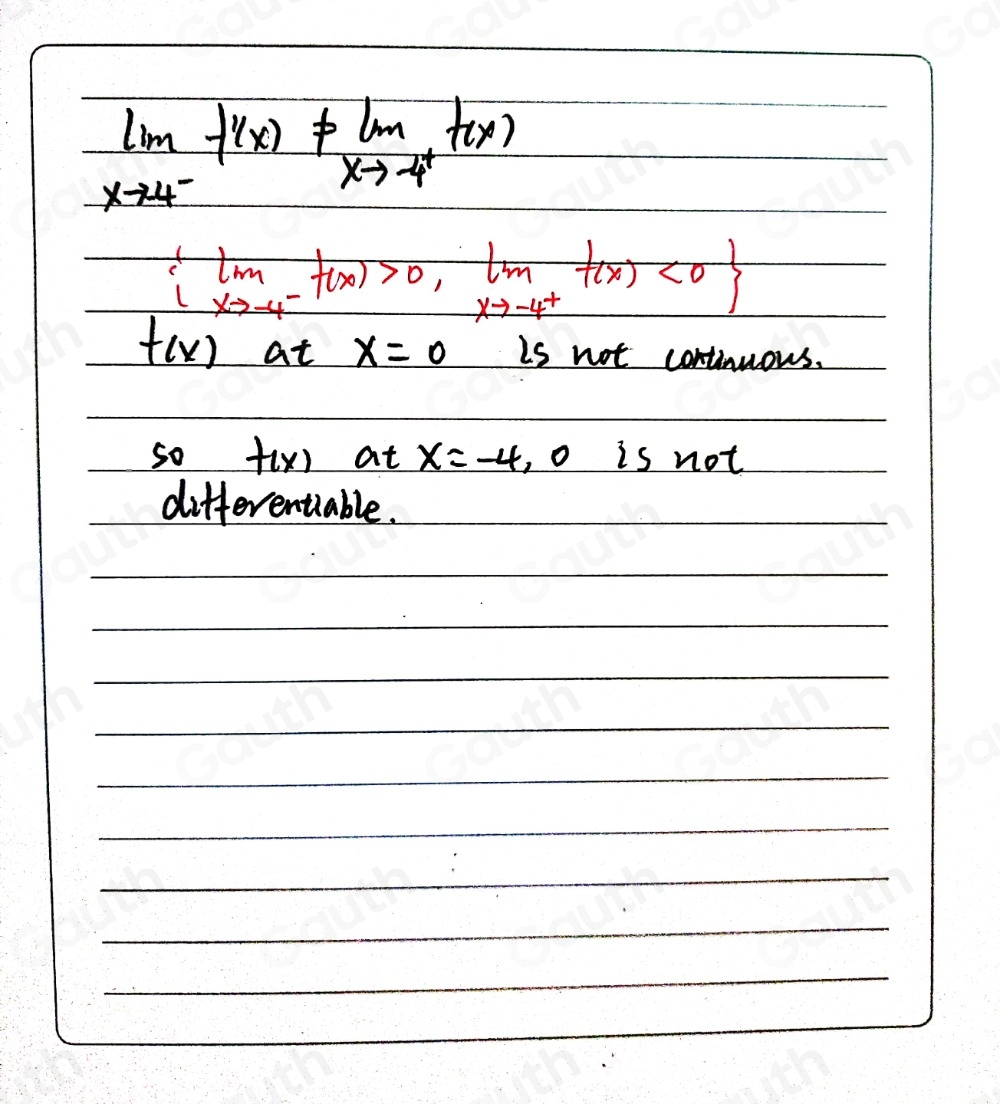 lim f'(x) ≠ lim f(x)
x→-4⁻ x→-4⁺
{ lim f(x) > 0, lim f(x) < 0 }
x→-4⁻ x→-4⁺
f(x) at x = 0 is not continuous.
so f(x) at x = -4, 0 is not
differentiable.